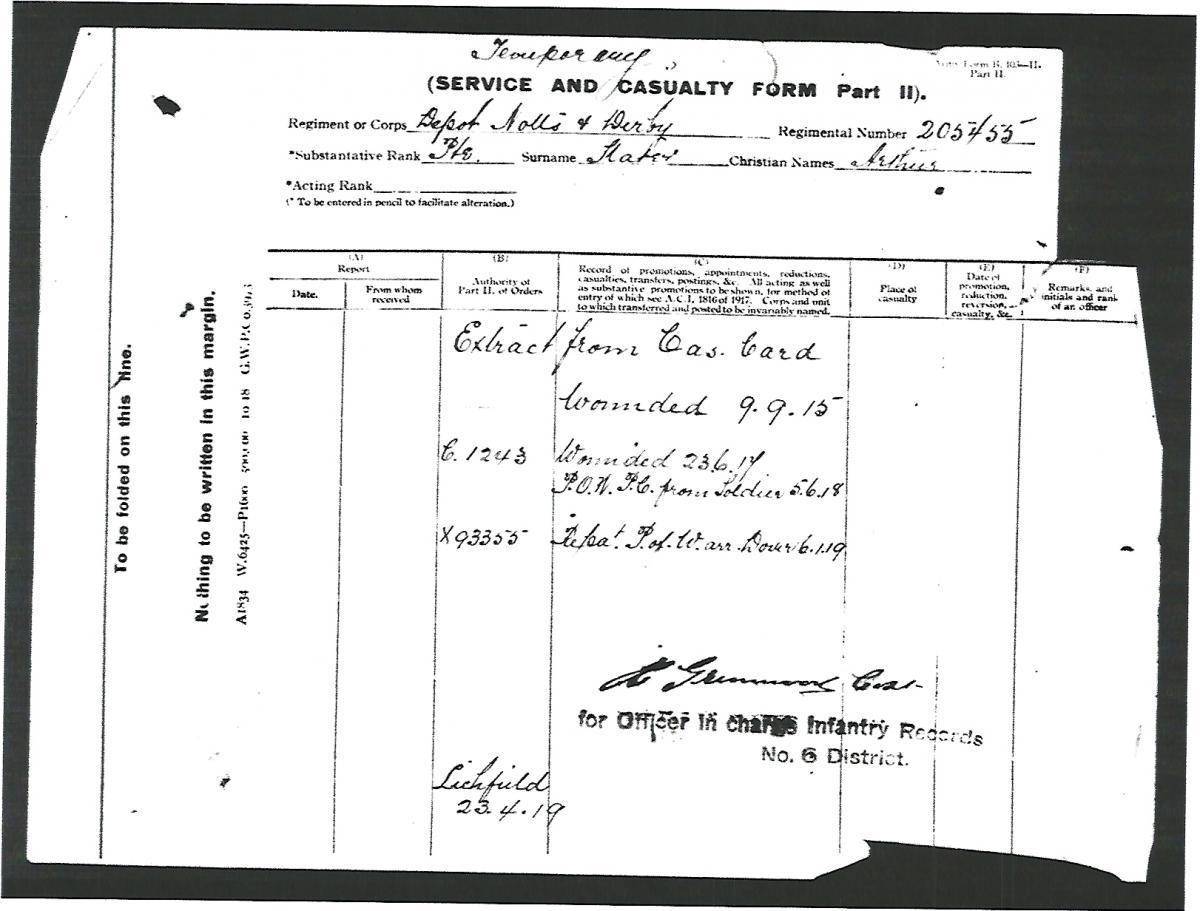 Temporary
Army Form B. 103—II.
Part II.
(SERVICE AND CASUALTY FORM Part II).
Regiment or Corps Depot Notts & Derby Regimental Number 205455
*Substantative Rank Pte. Surname Slater Christian Names Arthur
*Acting Rank
(* To be entered in pencil to facilitate alteration.)
(A)
Report
Date.
From whom
received
(B)
Authority of
Part II. of Orders
(C)
Record of promotions, appointments, reductions,
casualties, transfers, postings, &c. All acting as well
as substantive promotions to be shown, for method of
entry of which see A.C.I. 1816 of 1917. Corps and unit
to which transferred and posted to be invariably named.
(D)
Place of
casualty
(E)
Date of
promotion,
reduction,
reversion,
casualty, &c.
(F)
Remarks, and
initials and rank
of an officer
Extract from Cas. Card
Wounded 9.9.15
C. 1243 Wounded 23.6.17
P.O.W. P.C. from Soldier 5.6.18
X93355 Repat. P. of. W. arr. Dover 6.1.19
Greenwood
for Officer in charge Infantry Records
No. 6 District.
Lichfield
23.4.19
To be folded on this line.
Nothing to be written in this margin.
A1834 W.6425—P1600 500,000 10 18 G.W.P.Co